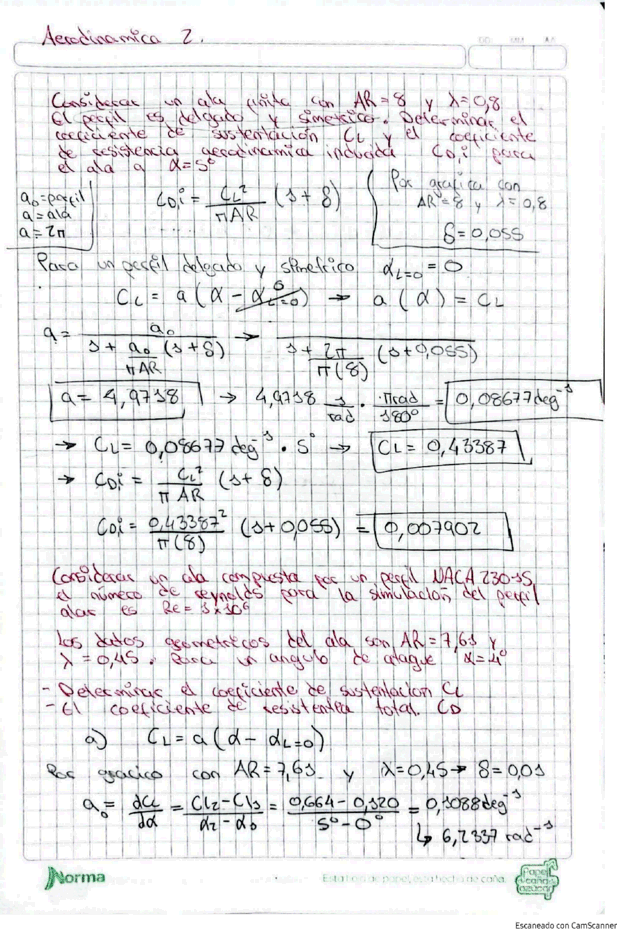 Aerodinamica 2.
Considerar un ala finita con AR=8 y λ=0,8
El perfil es delgado y simetrico. Determinar el
coeficiente de sustentación CL y el coeficiente
de resistencia aerodinamica inducida CD,i para
el ala a α=5°
a₀=perfil
a=ala
a=2π
CD,i = CL²/πAR (1+δ)
Por grafica con
AR=8 y λ=0,8
δ=0,055
Para un perfil delgado y simetrico αL=0 = 0
CL = a(α - αL=0) → a(α) = CL
a = a₀ / 1 + a₀/πAR (1+δ) → / 1 + 2π/π(8) (1+0,055)
a = 4,9718 → 4,9718 1/rad · πrad/180° = 0,08677deg⁻¹
→ CL = 0,08677 deg⁻¹ · 5° → CL = 0,43387
→ CD,i = CL²/πAR (1+δ)
CD,i = 0,43387²/π(8) (1+0,055) = 0,007902
Considerar un ala compuesta por un perfil NACA 230-15,
el número de reynolds para la simulación del perfil
alar es Re= 1x10⁶
Los datos geometricos del ala son AR=7,61 y
λ=0,45. Para un angulo de ataque α=4°
- Determinar el coeficiente de sustentacion CL
- El coeficiente de resistencia total. CD
a) CL = a(α - αL=0)
Por grafico con AR=7,61 y λ=0,45 → δ=0,01
a₀ = dCL/dα = CL2-CL1/α2-α0 = 0,664-0,120/5°-0° = 0,1088deg⁻¹
↳ 6,2337 rad⁻¹
Norma
Esta hoja de papel, esta hecha de caña.
Papel
caña
azúcar
Escaneado con CamScanner